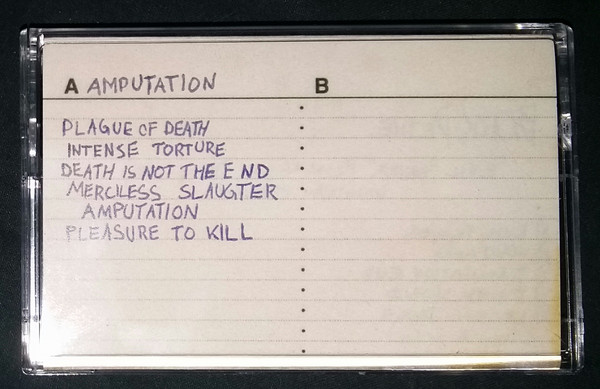 A AMPUTATION
B
PLAGUE OF DEATH
INTENSE TORTURE
DEATH IS NOT THE END
MERCILESS SLAUGTER
AMPUTATION
PLEASURE TO KILL